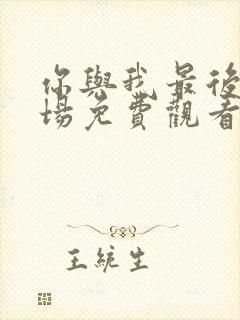 你與我最後
場免費觀看
王統生